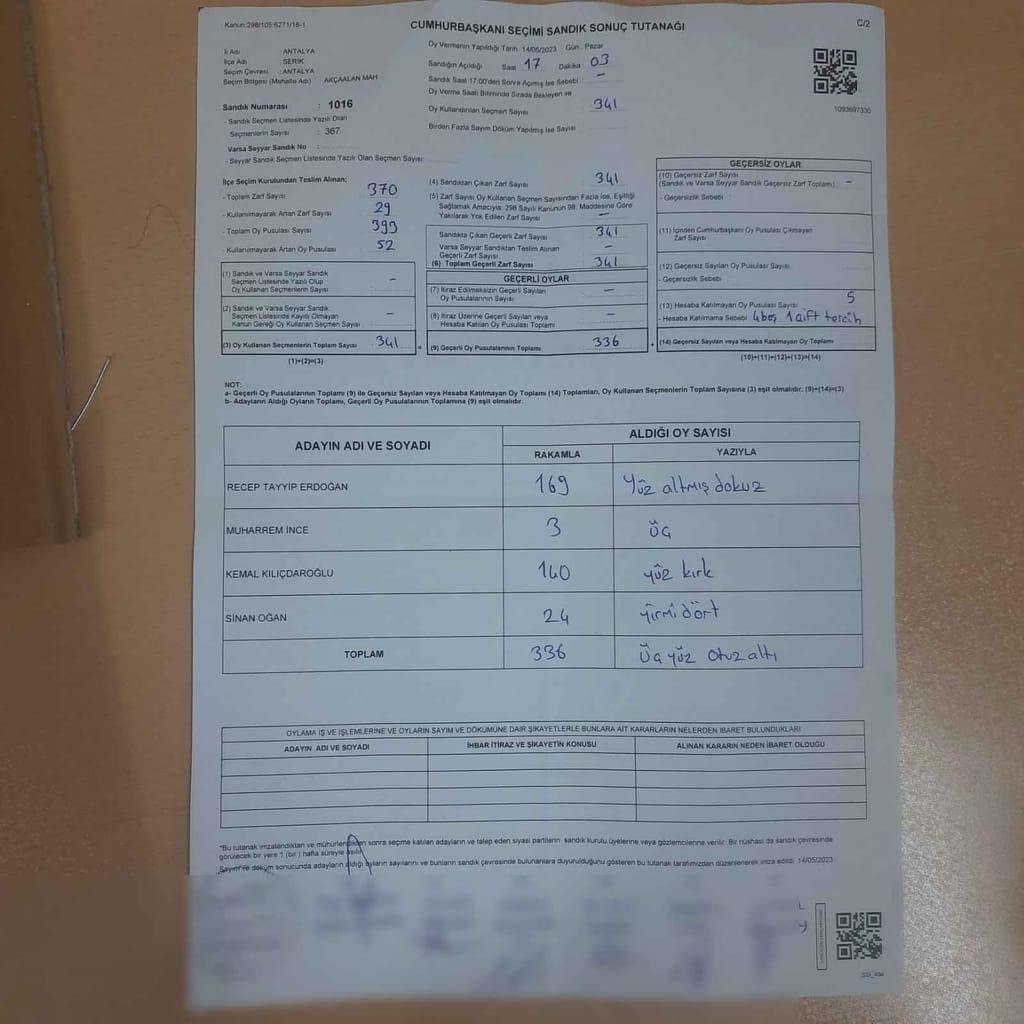 Kanun:298/105;6271/16-1
CUMHURBAŞKANI SEÇİMİ SANDIK SONUÇ TUTANAĞI
C/2
İl Adı : ANTALYA
İlçe Adı : SERİK
Seçim Çevresi : ANTALYA
Seçim Bölgesi (Mahalle Adı) : AKÇAALAN MAH
Sandık Numarası : 1016
- Sandık Seçmen Listesinde Yazılı Olan
Seçmenlerin Sayısı : 367
Varsa Seyyar Sandık No :
- Seyyar Sandık Seçmen Listesinde Yazılı Olan Seçmen Sayısı:
Oy Vermenin Yapıldığı Tarih : 14/05/2023 Gün : Pazar
Sandığın Açıldığı Saat 17 Dakika 03
Sandık Saat 17:00'den Sonra Açılmış İse Sebebi : –
Oy Verme Saati Bitiminde Sırada Bekleyen ve
Oy Kullandırılan Seçmen Sayısı 341
Birden Fazla Sayım Döküm Yapılmış İse Sayısı
1093697330
İlçe Seçim Kurulundan Teslim Alınan;
- Toplam Zarf Sayısı 370
- Kullanılmayarak Artan Zarf Sayısı 29
- Toplam Oy Pusulası Sayısı 399
- Kullanılmayarak Artan Oy Pusulası 52
(1) Sandık ve Varsa Seyyar Sandık
Seçmen Listesinde Yazılı Olup
Oy Kullanan Seçmenlerin Sayısı –
(2) Sandık ve Varsa Seyyar Sandık
Seçmen Listesinde Kayıtlı Olmayan
Kanun Gereği Oy Kullanan Seçmen Sayısı –
(3) Oy Kullanan Seçmenlerin Toplam Sayısı 341 =
(1)+(2)=(3)
(4) Sandıktan Çıkan Zarf Sayısı 341
(5) Zarf Sayısı Oy Kullanan Seçmen Sayısından Fazla İse, Eşitliği
Sağlamak Amacıyla; 298 Sayılı Kanunun 98. Maddesine Göre
Yakılarak Yok Edilen Zarf Sayısı –
Sandıkta Çıkan Geçerli Zarf Sayısı 341
Varsa Seyyar Sandıktan Teslim Alınan
Geçerli Zarf Sayısı –
(6) Toplam Geçerli Zarf Sayısı 341
GEÇERLİ OYLAR
(7) İtiraz Edilmeksizin Geçerli Sayılan
Oy Pusulalarının Sayısı –
(8) İtiraz Üzerine Geçerli Sayılan veya
Hesaba Katılan Oy Pusulası Toplamı –
(9) Geçerli Oy Pusulalarının Toplamı 336 +
GEÇERSİZ OYLAR
(10) Geçersiz Zarf Sayısı
(Sandık ve Varsa Seyyar Sandık Geçersiz Zarf Toplamı) –
- Geçersizlik Sebebi :
(11) İçinden Cumhurbaşkanı Oy Pusulası Çıkmayan
Zarf Sayısı
(12) Geçersiz Sayılan Oy Pusulası Sayısı
- Geçersizlik Sebebi
(13) Hesaba Katılmayan Oy Pusulası Sayısı 5
- Hesaba Katılmama Sebebi 4 boş 1 çift tercih
(14) Geçersiz Sayılan veya Hesaba Katılmayan Oy Toplamı
(10)+(11)+(12)+(13)=(14)
NOT:
a- Geçerli Oy Pusulalarının Toplamı (9) ile Geçersiz Sayılan veya Hesaba Katılmayan Oy Toplamı (14) Toplamları, Oy Kullanan Seçmenlerin Toplam Sayısına (3) eşit olmalıdır. (9)+(14)=(3)
b- Adayların Aldığı Oyların Toplamı, Geçerli Oy Pusulalarının Toplamına (9) eşit olmalıdır.
ADAYIN ADI VE SOYADI ALDIĞI OY SAYISI
RAKAMLA YAZIYLA
RECEP TAYYİP ERDOĞAN 169 Yüz altmış dokuz
MUHARREM İNCE 3 üç
KEMAL KILIÇDAROĞLU 140 yüz kırk
SİNAN OĞAN 24 yirmi dört
TOPLAM 336 Üç yüz otuz altı
OYLAMA İŞ VE İŞLEMLERİNE VE OYLARIN SAYIM VE DÖKÜMÜNE DAİR ŞİKAYETLERLE BUNLARA AİT KARARLARIN NELERDEN İBARET BULUNDUKLARI
ADAYIN ADI VE SOYADI İHBAR İTİRAZ VE ŞİKAYETİN KONUSU ALINAN KARARIN NEDEN İBARET OLDUĞU
"Bu tutanak imzalandıktan ve mühürlendikten sonra seçime katılan adayların ve talep eden siyasi partilerin sandık kurulu üyelerine veya gözlemcilerine verilir. Bir nüshası da sandık çevresinde
görülecek bir yere 1 (bir) hafta süreyle asılır.
Sayım ve döküm sonucunda adayların aldığı oyların sayılarını ve bunların sandık çevresinde bulunanlara duyurulduğunu gösteren bu tutanak tarafımızdan düzenlenerek imza edildi. 14/05/2023